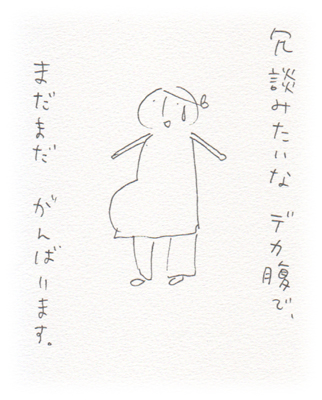 冗談みたいな デカ腹で、
まだまだ がんばります。